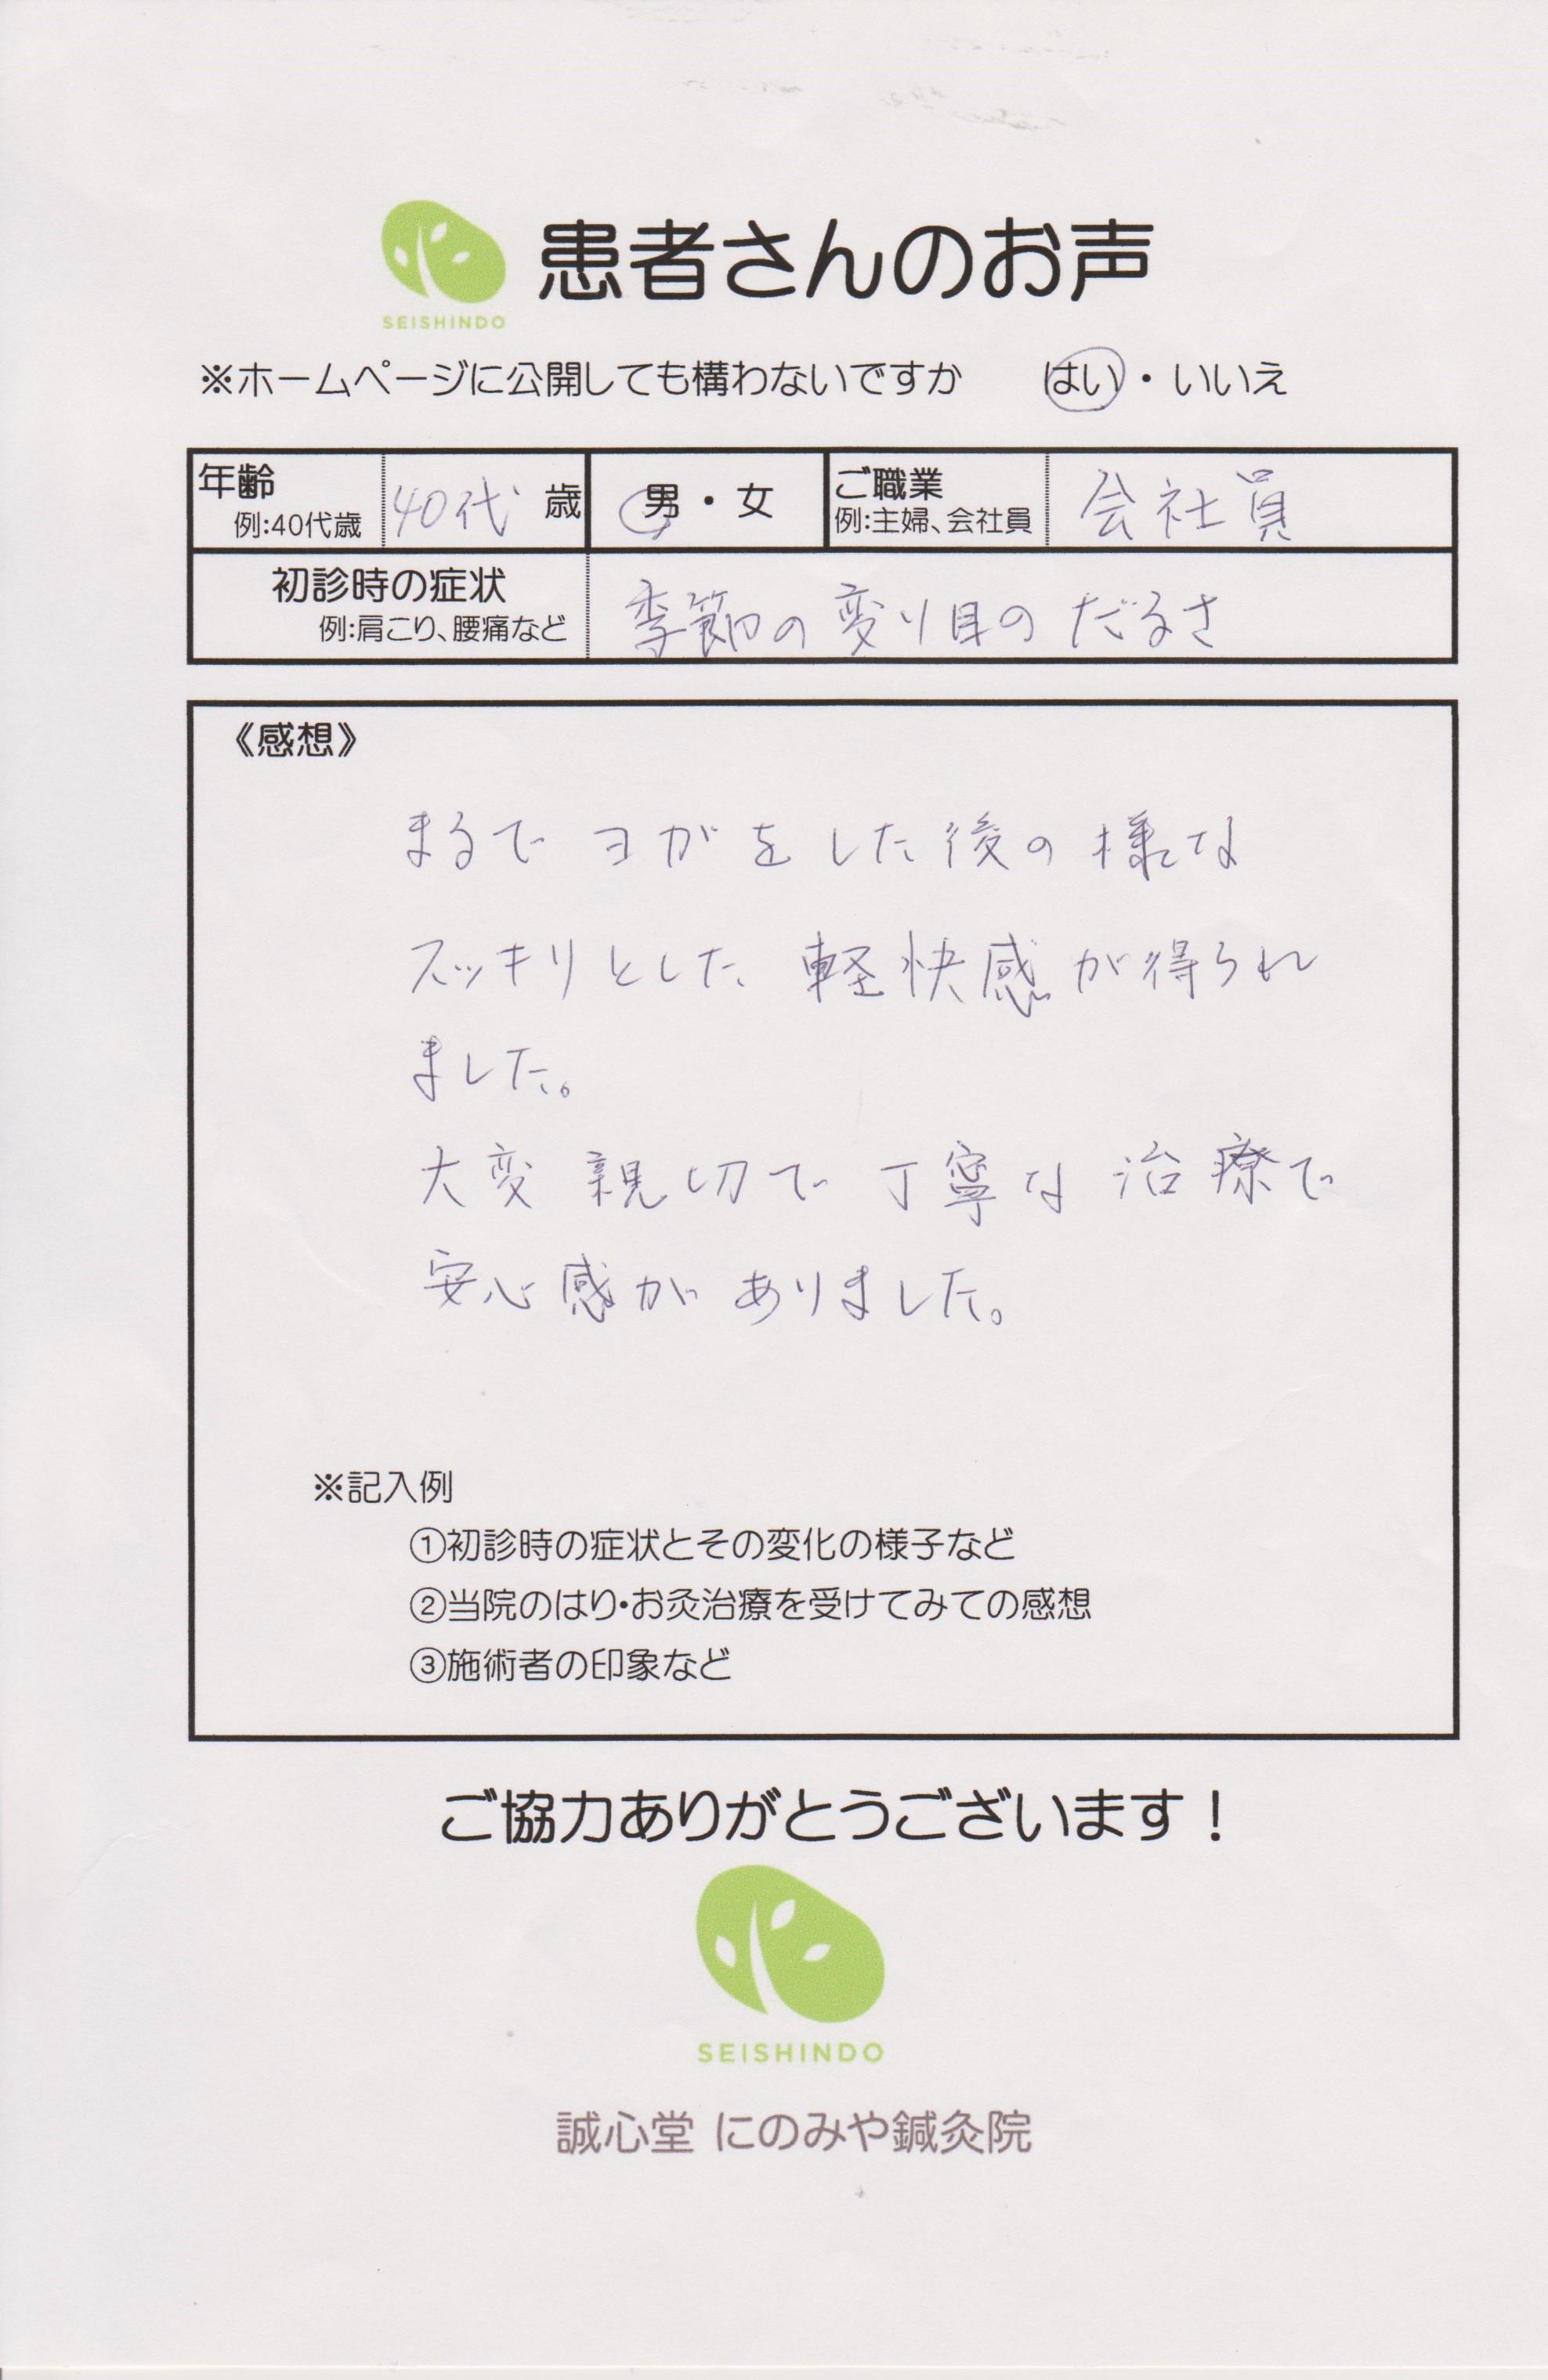 SEISHINDO
患者さんのお声
※ホームページに公開しても構わないですか はい・いいえ
年齢 例:40代歳 40代 歳 男・女 ご職業 例:主婦、会社員 会社員
初診時の症状 例:肩こり、腰痛など 季節の変り目のだるさ
《感想》
まるでヨガをした後の様な
スッキリとした軽快感が得られ
ました。
大変親切で丁寧な治療で
安心感がありました。
※記入例
①初診時の症状とその変化の様子など
②当院のはり・お灸治療を受けてみての感想
③施術者の印象など
ご協力ありがとうございます！
SEISHINDO
誠心堂 にのみや鍼灸院